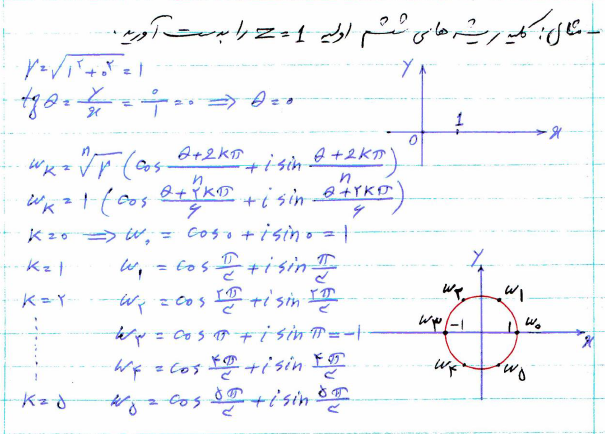 مثال: کلیه ریشه های ششم اولیه z=1 را به دست آورید.
r = √(۱^۲+۰^۲) = ۱
tgθ = y/x = ۰/۱ = ۰ ⟹ θ = ۰
y
x
0
1
w_k = ⁿ√r (cos (θ+2kπ)/n + i sin (θ+2kπ)/n)
w_k = ۱ (cos (θ+۲kπ)/۶ + i sin (θ+۲kπ)/۶)
k=۰ ⟹ w_۰ = cos ۰ + i sin ۰ = ۱
k=۱ w_۱ = cos π/۳ + i sin π/۳
k=۲ w_۲ = cos ۲π/۳ + i sin ۲π/۳
w_۳ = cos π + i sin π = -۱
w_۴ = cos ۴π/۳ + i sin ۴π/۳
k=۵ w_۵ = cos ۵π/۳ + i sin ۵π/۳
y
w_۲ w_۱
w_۳ -۱ ۱ w_۰
x
w_۴ w_۵